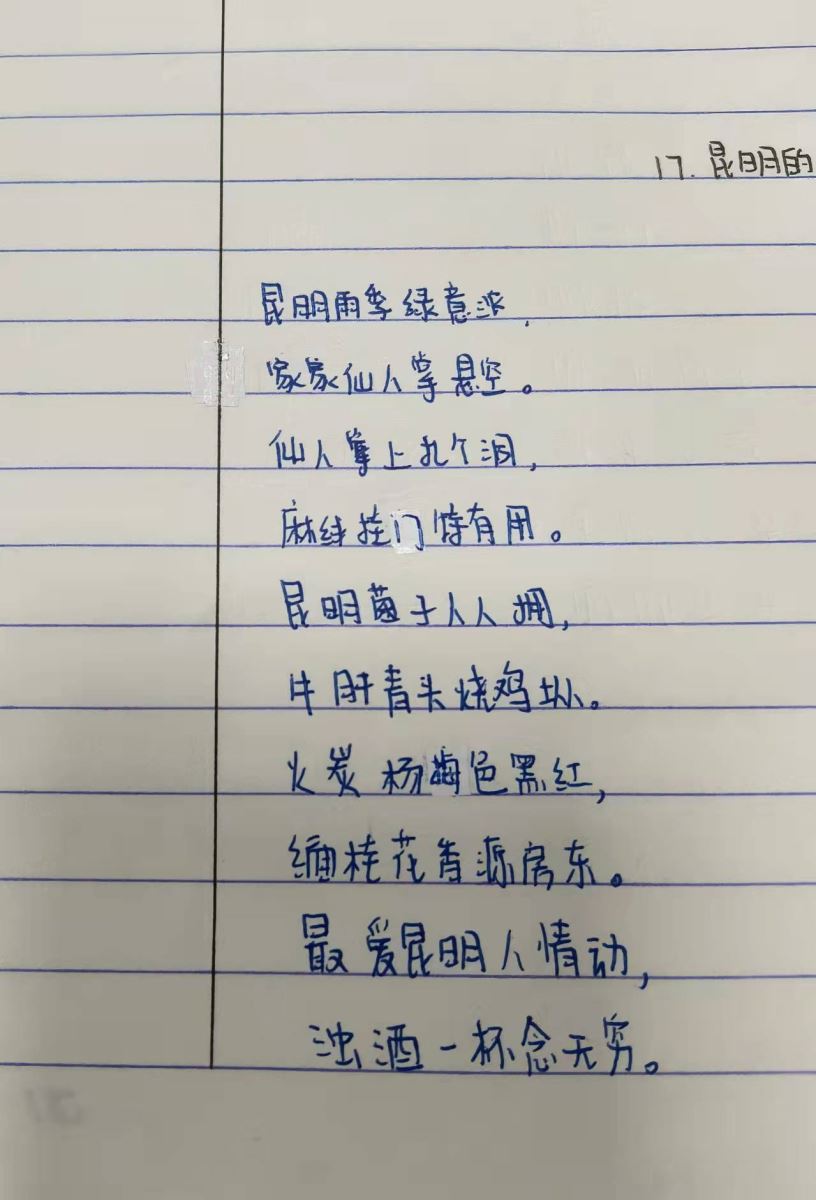 17. 昆明的
昆明雨季绿意浓，
家家仙人掌悬空。
仙人掌上扎个洞，
麻绳挂门特有用。
昆明菌子人人拥，
牛肝青头烧鸡㙡。
火炭杨梅色黑红，
缅桂花香源房东。
最爱昆明人情动，
浊酒一杯念无穷。